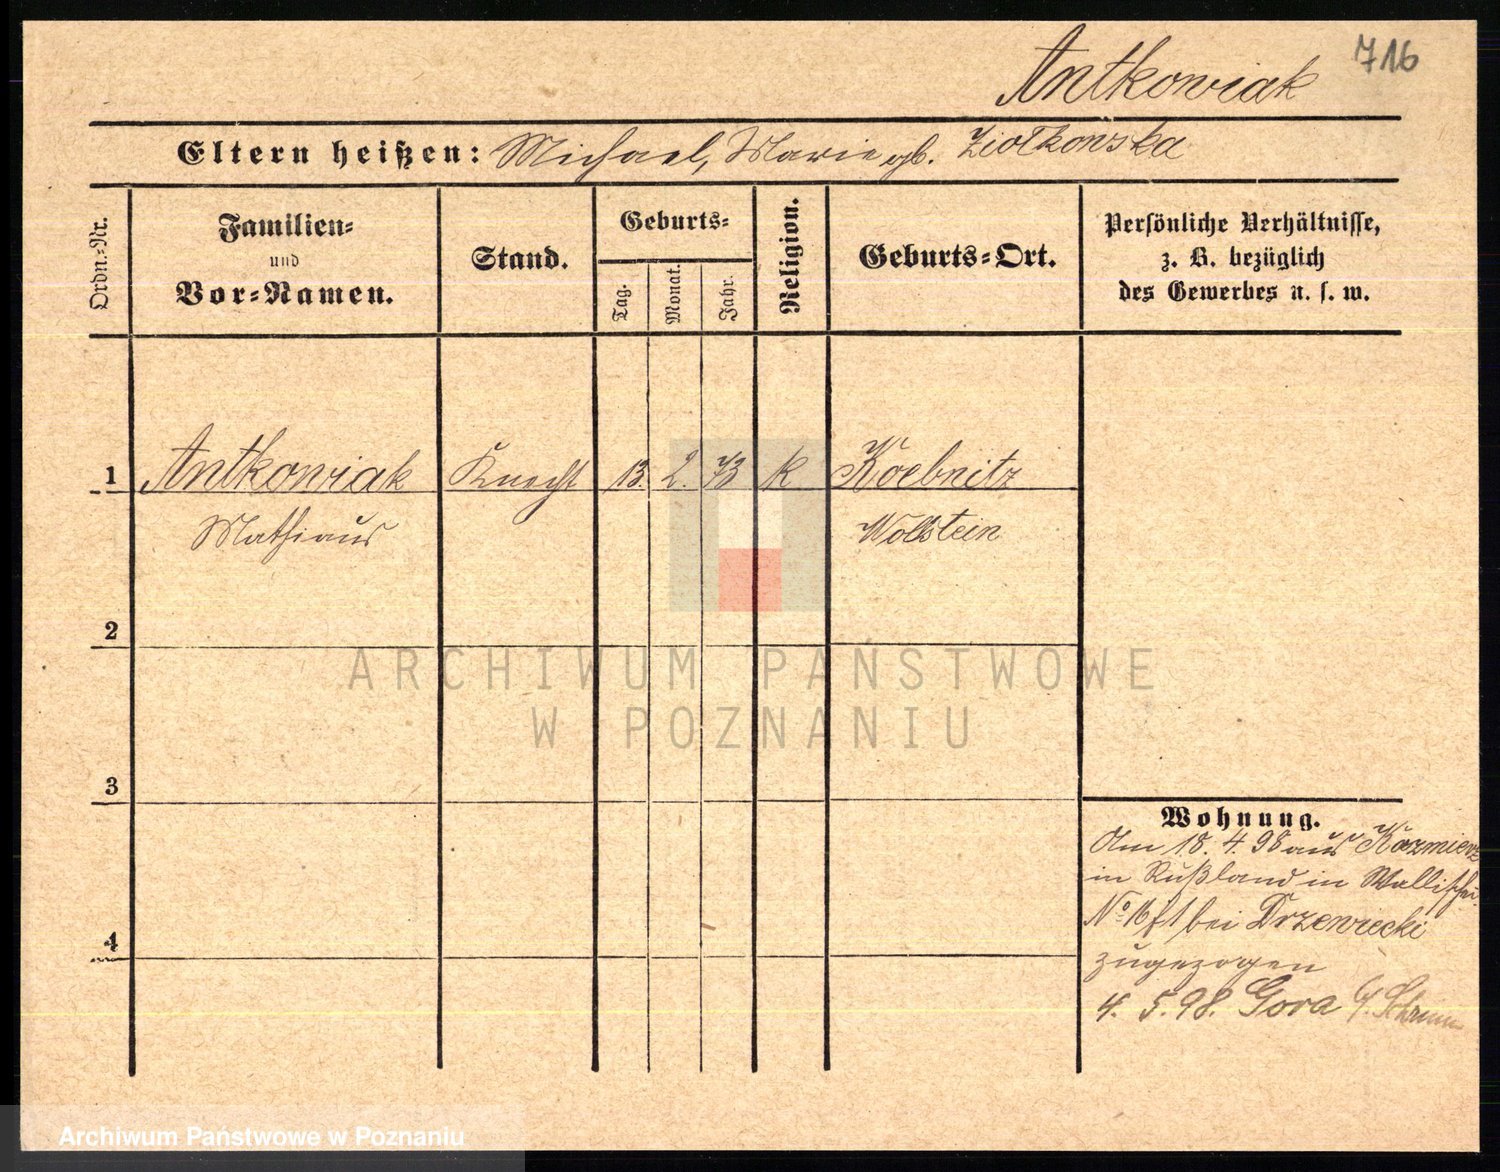 716
Antkowiak
Eltern heißen: Michael, Marie gb. Ziołkowska
Ordn.-Nr.
Familien-
und
Vor-Namen.
Stand.
Geburts-
Tag.
Monat.
Jahr.
Religion.
Geburts-Ort.
Persönliche Verhältnisse,
z. B. bezüglich
des Gewerbes u. s. w.
1 Antkowiak Knecht 13. 2. 73 k Koebnitz
Mathiaus Wollstein
2
3
4
Wohnung.
Am 18. 4. 98 aus Kazmierz
in Rußland in Wallischei
No 16 bei Drzewiecki
zugezogen
4. 5. 98. Gora Schrimm
ARCHIWUM PAŃSTWOWE
W POZNANIU
Archiwum Państwowe w Poznaniu